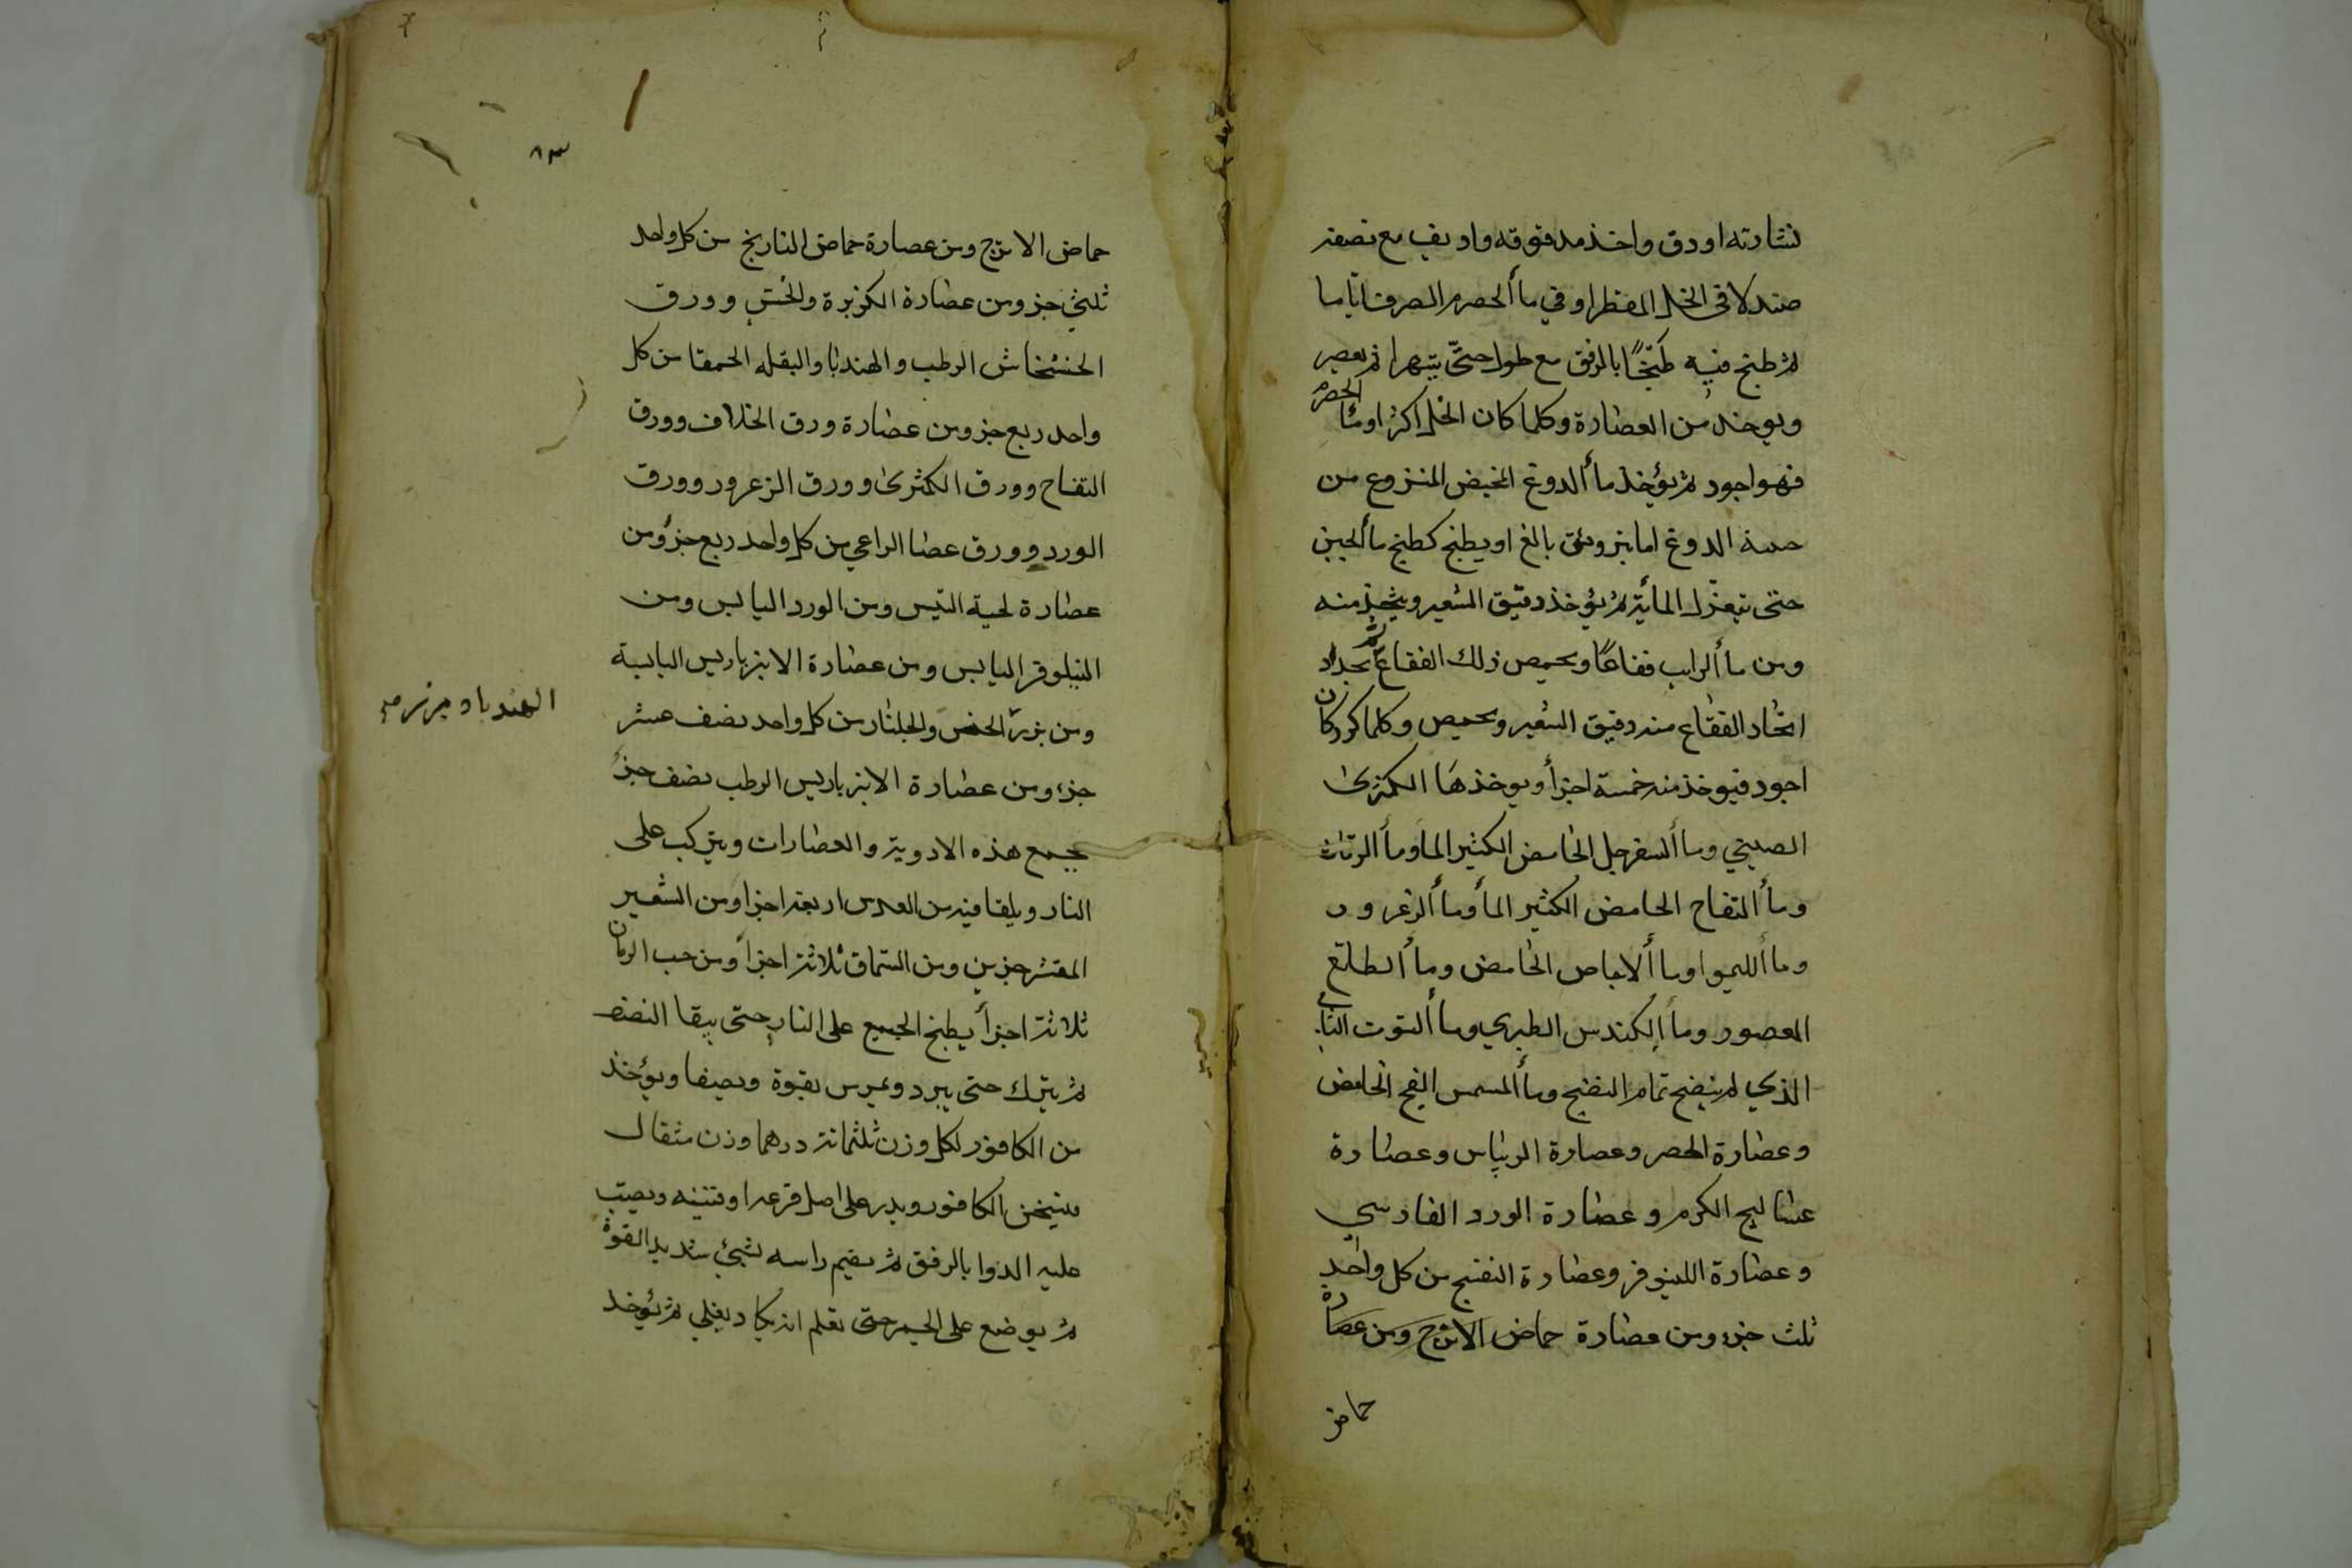 نشارته اودق واخذ مدقوقه واديف مع نصفه
صندلا في الخل المقطر او في ماألحصرم الصرف اياما
ثم طبخ فيه طبخًا بالرفق مع طول حتى يتهرا ثم يعصر
ويوخذ من العصارة وكلما كان الخل اكثر اوماأ الحصرم
فهو اجود ثم يؤخذ مأالدوغ المخيض المنزوع من
الدوغ اما بترويق بالغ او يطبخ كطبخ مأالجبن
حتى تنعزل المائية ثم يؤخذ دقيق الشعير ويتخذ منه
ومن مأالرايب فقاعًا ويحمص ذلك الفقاع ثم يجداد
اتخاد الفقاع من دقيق الشعير ويحمض وكلما كرر كان
اجود فيوخذ منه خمسة اجزأ ويوخذ مَا الكمثرى
الصيني ومأالسفرجل الحامض الكثير المأ ومأالرمان
ومأالتفاح الحامض الكثير المأ ومأالزعرور
ومأالليموا ومأالاجاص الحامض ومأالطلع
المعصور ومأالكندس الطبري ومأالتوت
الذي لم ينضج تمام النضج ومأالمشمش الفج الحامض
وعصارة الحصرم وعصارة الريباس وعصارة
عساليج الكرم وعصارة الورد الفارسي
وعصارة اللينوفر وعصارة البنفسج من كل واحد
ثلث جزء ومن عصارة حماض الاترج ومن عصارة
حماض
٨٣
حماض الاترج ومن عصارة حماض النارنج من كل واحد
ثلثي جز ومن عصارة الكزبرة والخس وورق
الخشخاش الرطب والهندبا والبقله الحمقا من كل
واحد ربع جز ومن عصارة ورق الخلاف وورق
التفاح وورق الكمثرى وورق الزعرور وورق
الورد وورق عصا الراعي من كل واحد ربع جزؤ من
عصارة لحية التيس ومن الورد اليابس ومن
النيلوفر اليابس ومن عصارة الانبرباريس اليابسة
ومن بزر الخس والجلنار من كل واحد نصف عشر
جزء ومن عصارة الانبرباريس الرطب نصف جزء
يجمع هذه الادوية والعصارات ويتركب على
النار ويلقا فيه من العدس اربعة اجزا ومن الشعير
المقشر جزين ومن السماق ثلاثة اجزأ ومن حب الرمان
ثلاثة اجزأ يطبخ الجميع على النار حتى يبقا النصف
ثم يترك حتى يبرد ويمرس بقوة ويصفا ويؤخذ
من الكافور لكل وزن ثلثمائة درهما وزن مثقال
الكافور ويدر على اصل قرعه او قنينه ويصب
عليه الدوا بالرفق ثم يضم راسه بشيئ شديد القوة
ثم يوضع على الجمر حتى تعلم انه يكاد يغلي ثم يؤخذ
الهندبا